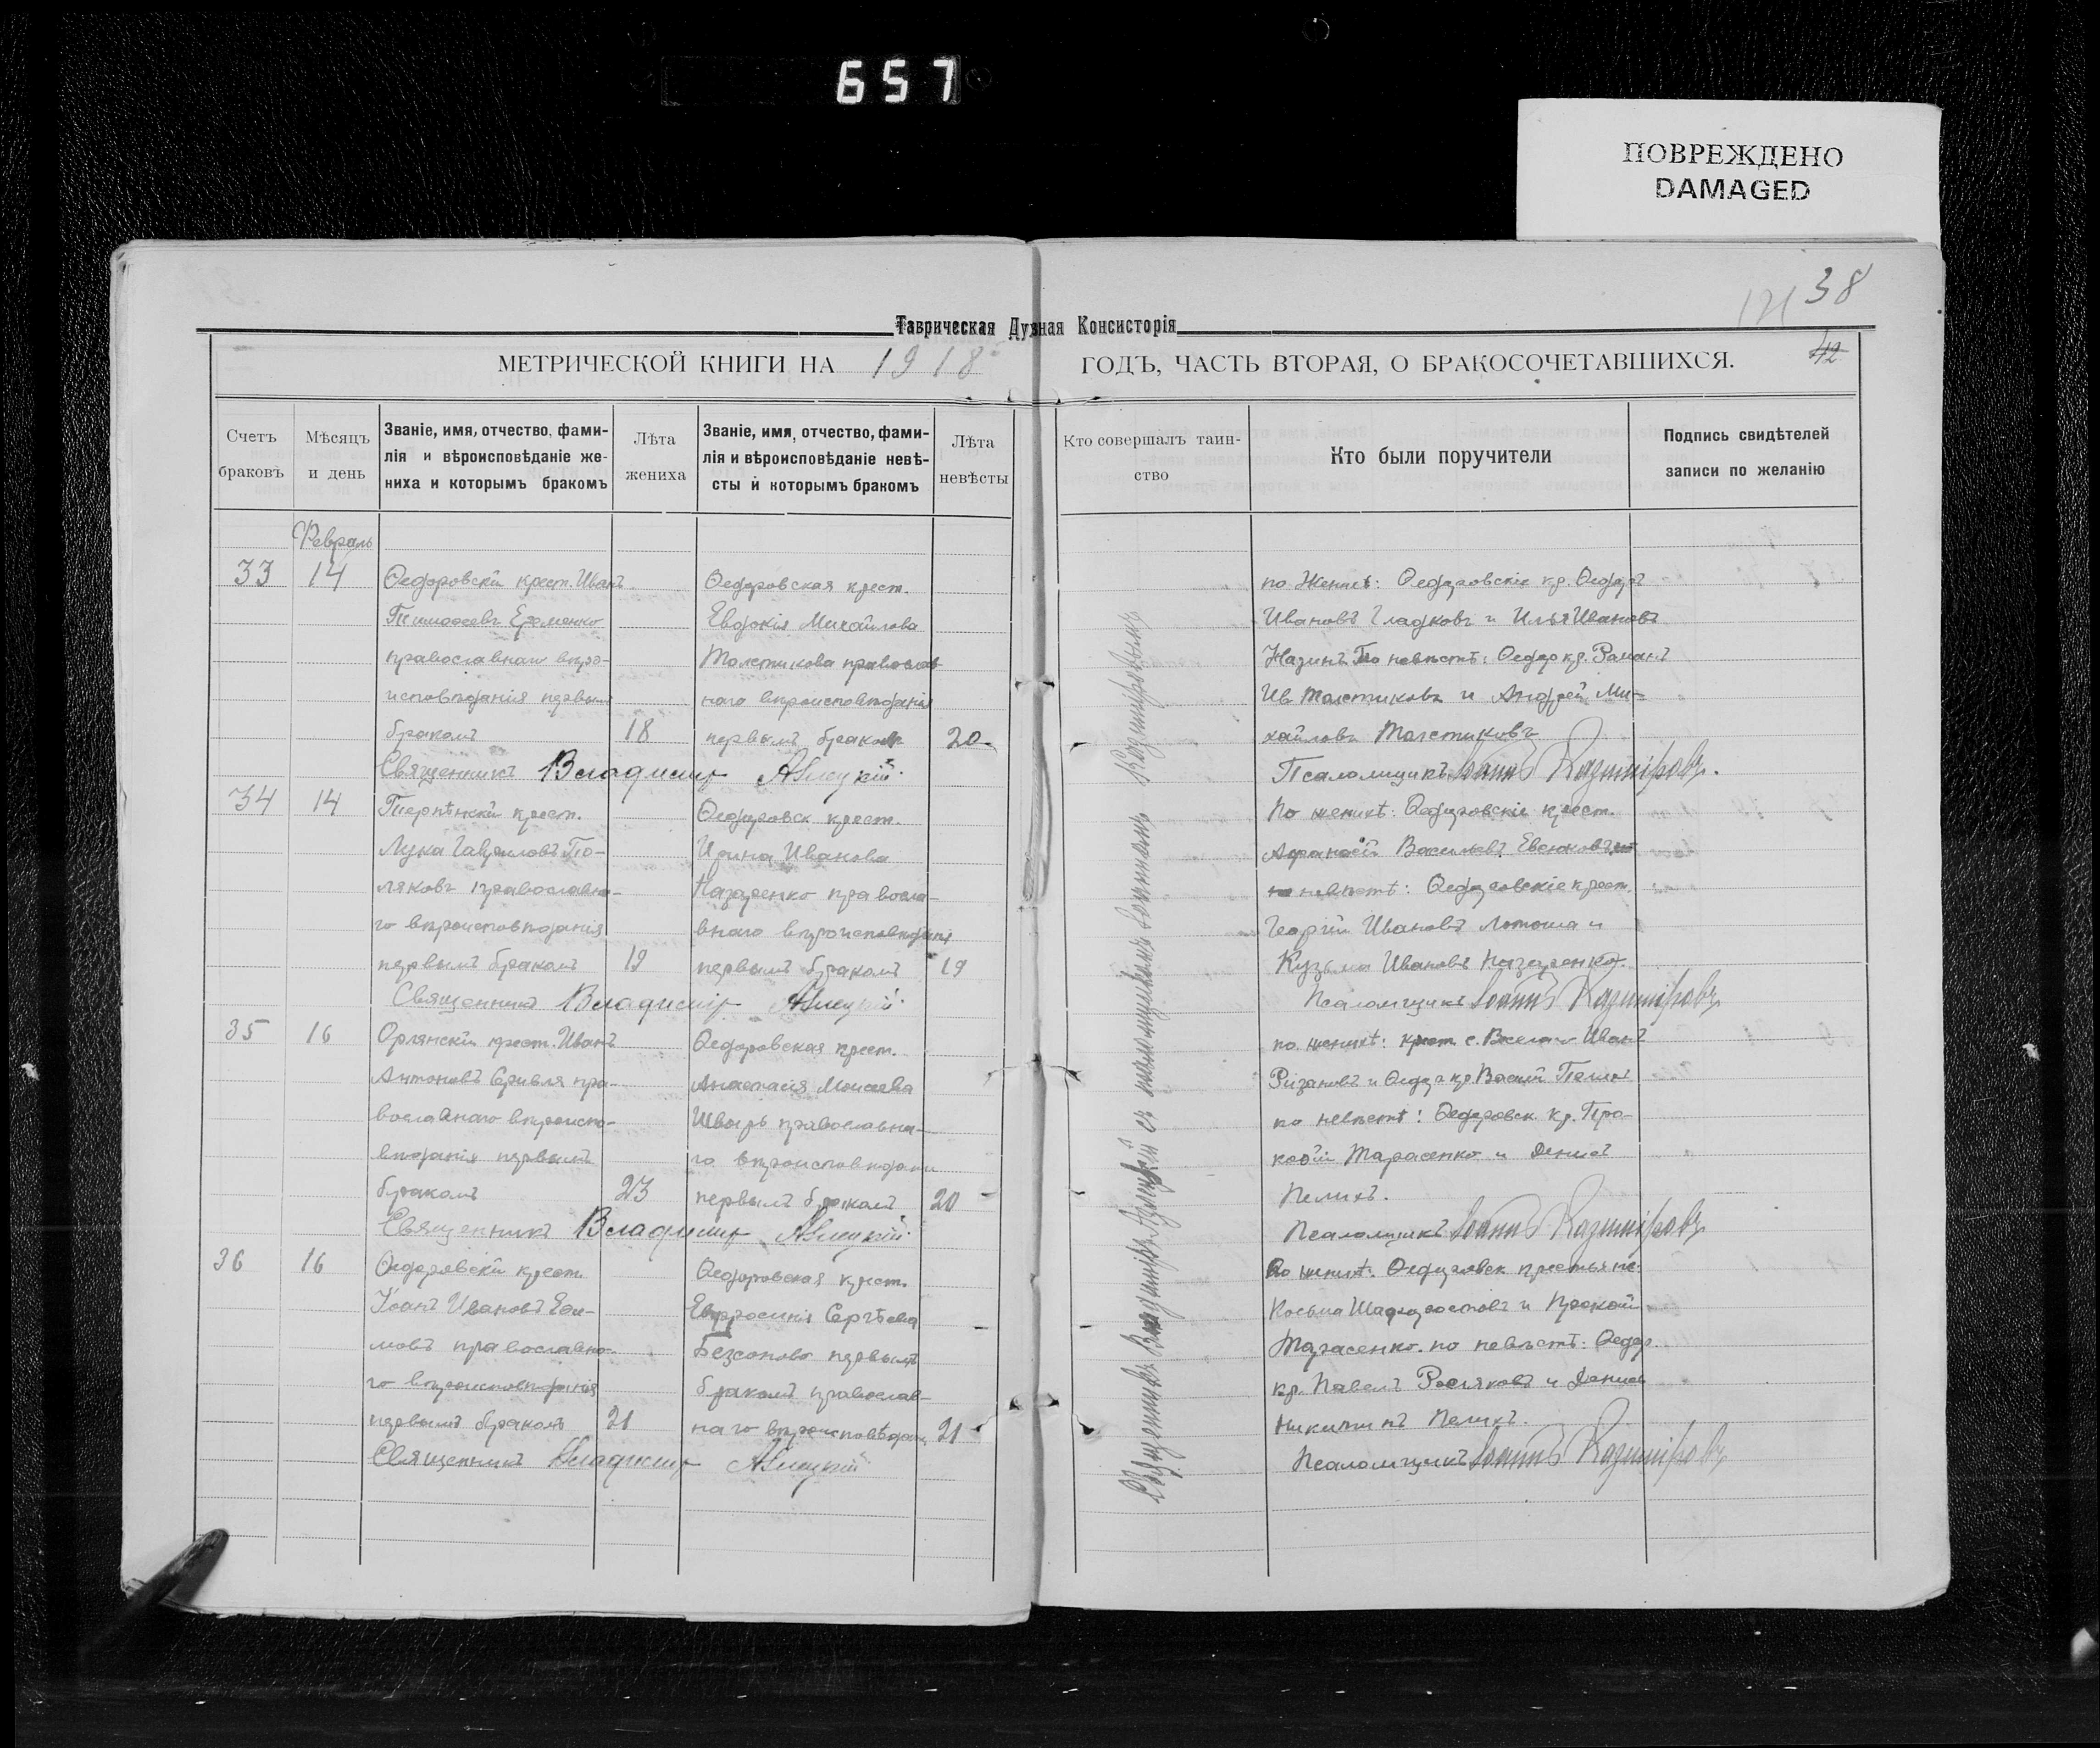 657
ПОВРЕЖДЕНО
DAMAGED
38
121
Таврическая Духная Консисторія
МЕТРИЧЕСКОЙ КНИГИ НА 1918 ГОДЪ, ЧАСТЬ ВТОРАЯ, О БРАКОСОЧЕТАВШИХСЯ. 42
Счетъ браковъ
Мѣсяцъ и день
Званіе, имя, отчество, фами-
лія и вѣроисповѣданіе же-
ниха и которымъ бракомъ
Лѣта жениха
Званіе, имя, отчество, фами-
лія и вѣроисповѣданіе невѣ-
сты и которымъ бракомъ
Лѣта невѣсты
Кто совершалъ таин-
ство
Кто были поручители
Подпись свидѣтелей
записи по желанію
Февраль
33 14
Ѳедоровскій крест. Иванъ
Тимоѳеевъ Еременко
православнаго вѣро-
исповѣданія первымъ
бракомъ 18
Ѳедоровская крест.
Евдокія Михайлова
Толстикова православ-
наго вѣроисповѣданія
первымъ бракомъ 20
Священникъ Владиміръ
по Женихѣ: Ѳедоровскіе кр. Ѳедоръ
Ивановъ Гладковъ и Илья Ивановъ
По невѣстѣ: Ѳедор кр. Романъ
Ив Толстиковъ и Андрей Ми-
хайловъ Толстиковъ
Псаломщикъ Іоаннъ Казиміровъ.
34 14
крест.
Лука Гавриловъ По-
ляковъ православна-
го вѣроисповѣданія
первымъ бракомъ 19
Ѳедоровск крест.
Ирина Иванова
Назаренко правосла-
внаго вѣроисповѣданія
первымъ бракомъ 19
Священникъ Владиміръ
По женихѣ: Ѳедоровскіе крест.
Аѳанасій Васильевъ
по невѣстѣ: Ѳедоровскіе крест.
Георгій Ивановъ Лотоша и
Кузьма Ивановъ Назаренко.
Псаломщикъ Іоаннъ Казиміровъ
35 16
Орлянскій крест. Иванъ
Антоновъ пра-
вославнаго вѣроиспо-
вѣданія первымъ
бракомъ 23
Ѳедоровская крест.
Анастасія Моисеева
Швырь православна-
го вѣроисповѣдани
первымъ бракомъ 20
Священникъ Владиміръ
по женихѣ: крест. с. Иванъ
и Ѳедор кр.
по невѣстѣ: Ѳедоровск. кр. Про-
кофій Тарасенко и Денисъ
Пелихъ.
Псаломщикъ Іоаннъ Казиміровъ
36 16
Ѳедоровскій крест.
Іоанъ Ивановъ Ефи-
мовъ православно-
го вѣроисповѣданія
первымъ бракомъ 21
Ѳедоровская крест.
Евфросинія Сергѣева
Безсонова первымъ
бракомъ православ-
наго вѣроисповѣдан 21
Священникъ Владиміръ
По женихѣ: Ѳедоровск крестьяне:
Косьма и Прокофій
Тарасенко. по невѣстѣ: Ѳедор.
кр. Павелъ и Денисъ
Никитинъ Пелихъ.
Псаломщикъ Іоаннъ Казиміровъ
Священникъ Владиміръ съ псаломщикомъ Іоанномъ Казиміровымъ